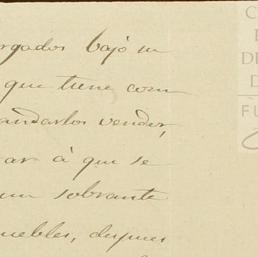 rgados bajó su
que tiene com
andarlos vender,
ar à que se
un sobrante
uebles, despues